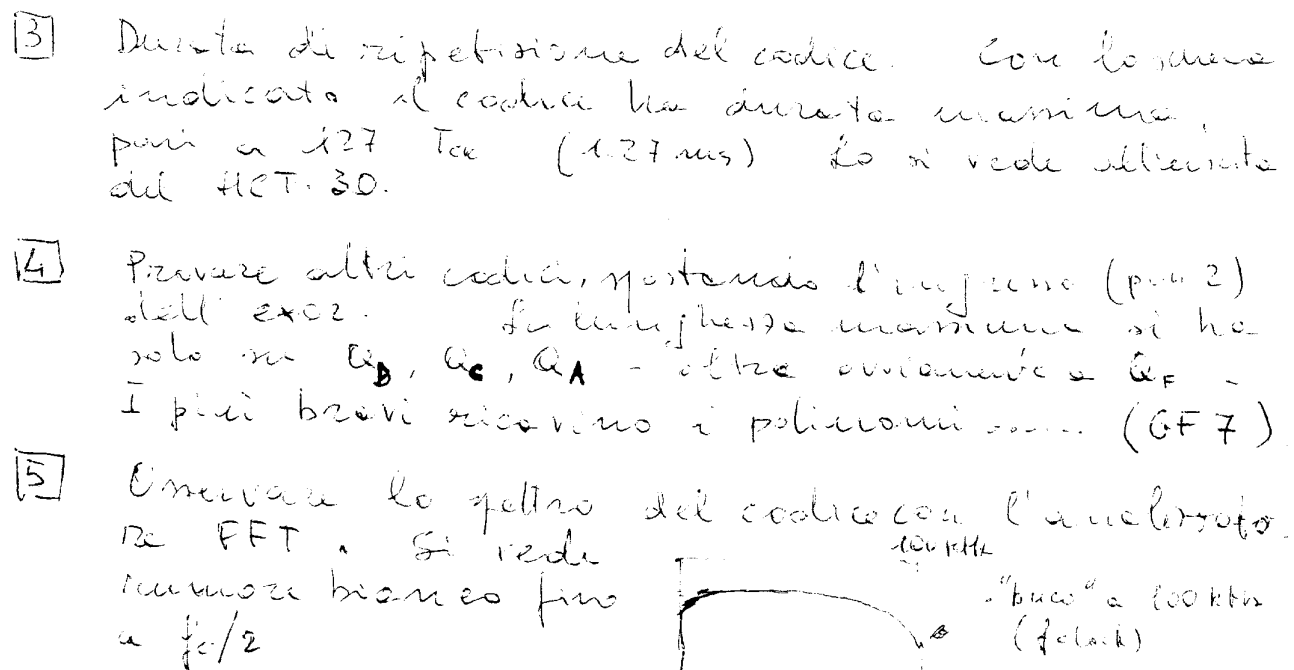 3 Durata di ripetizione del codice. Con lo schema
indicato il codice ha durata massima,
pari a 127 Tck (1.27 ms) Lo si vede all'uscita
del HCT-30.
4 Provare altri codici, spostando l'ingresso (pin 2)
dell' exor. La lunghezza massima si ha
solo su QD, QC, QA - oltre ovviamente a QF -
I più bravi ricavino i polinomi ..... (GF 7)
5 Osservare lo spettro del codice con l'analizzato-
re FFT. Si vede
100 kHz
rumore bianco fino
"buco" a 100 kHz
a fc/2
(fclock)